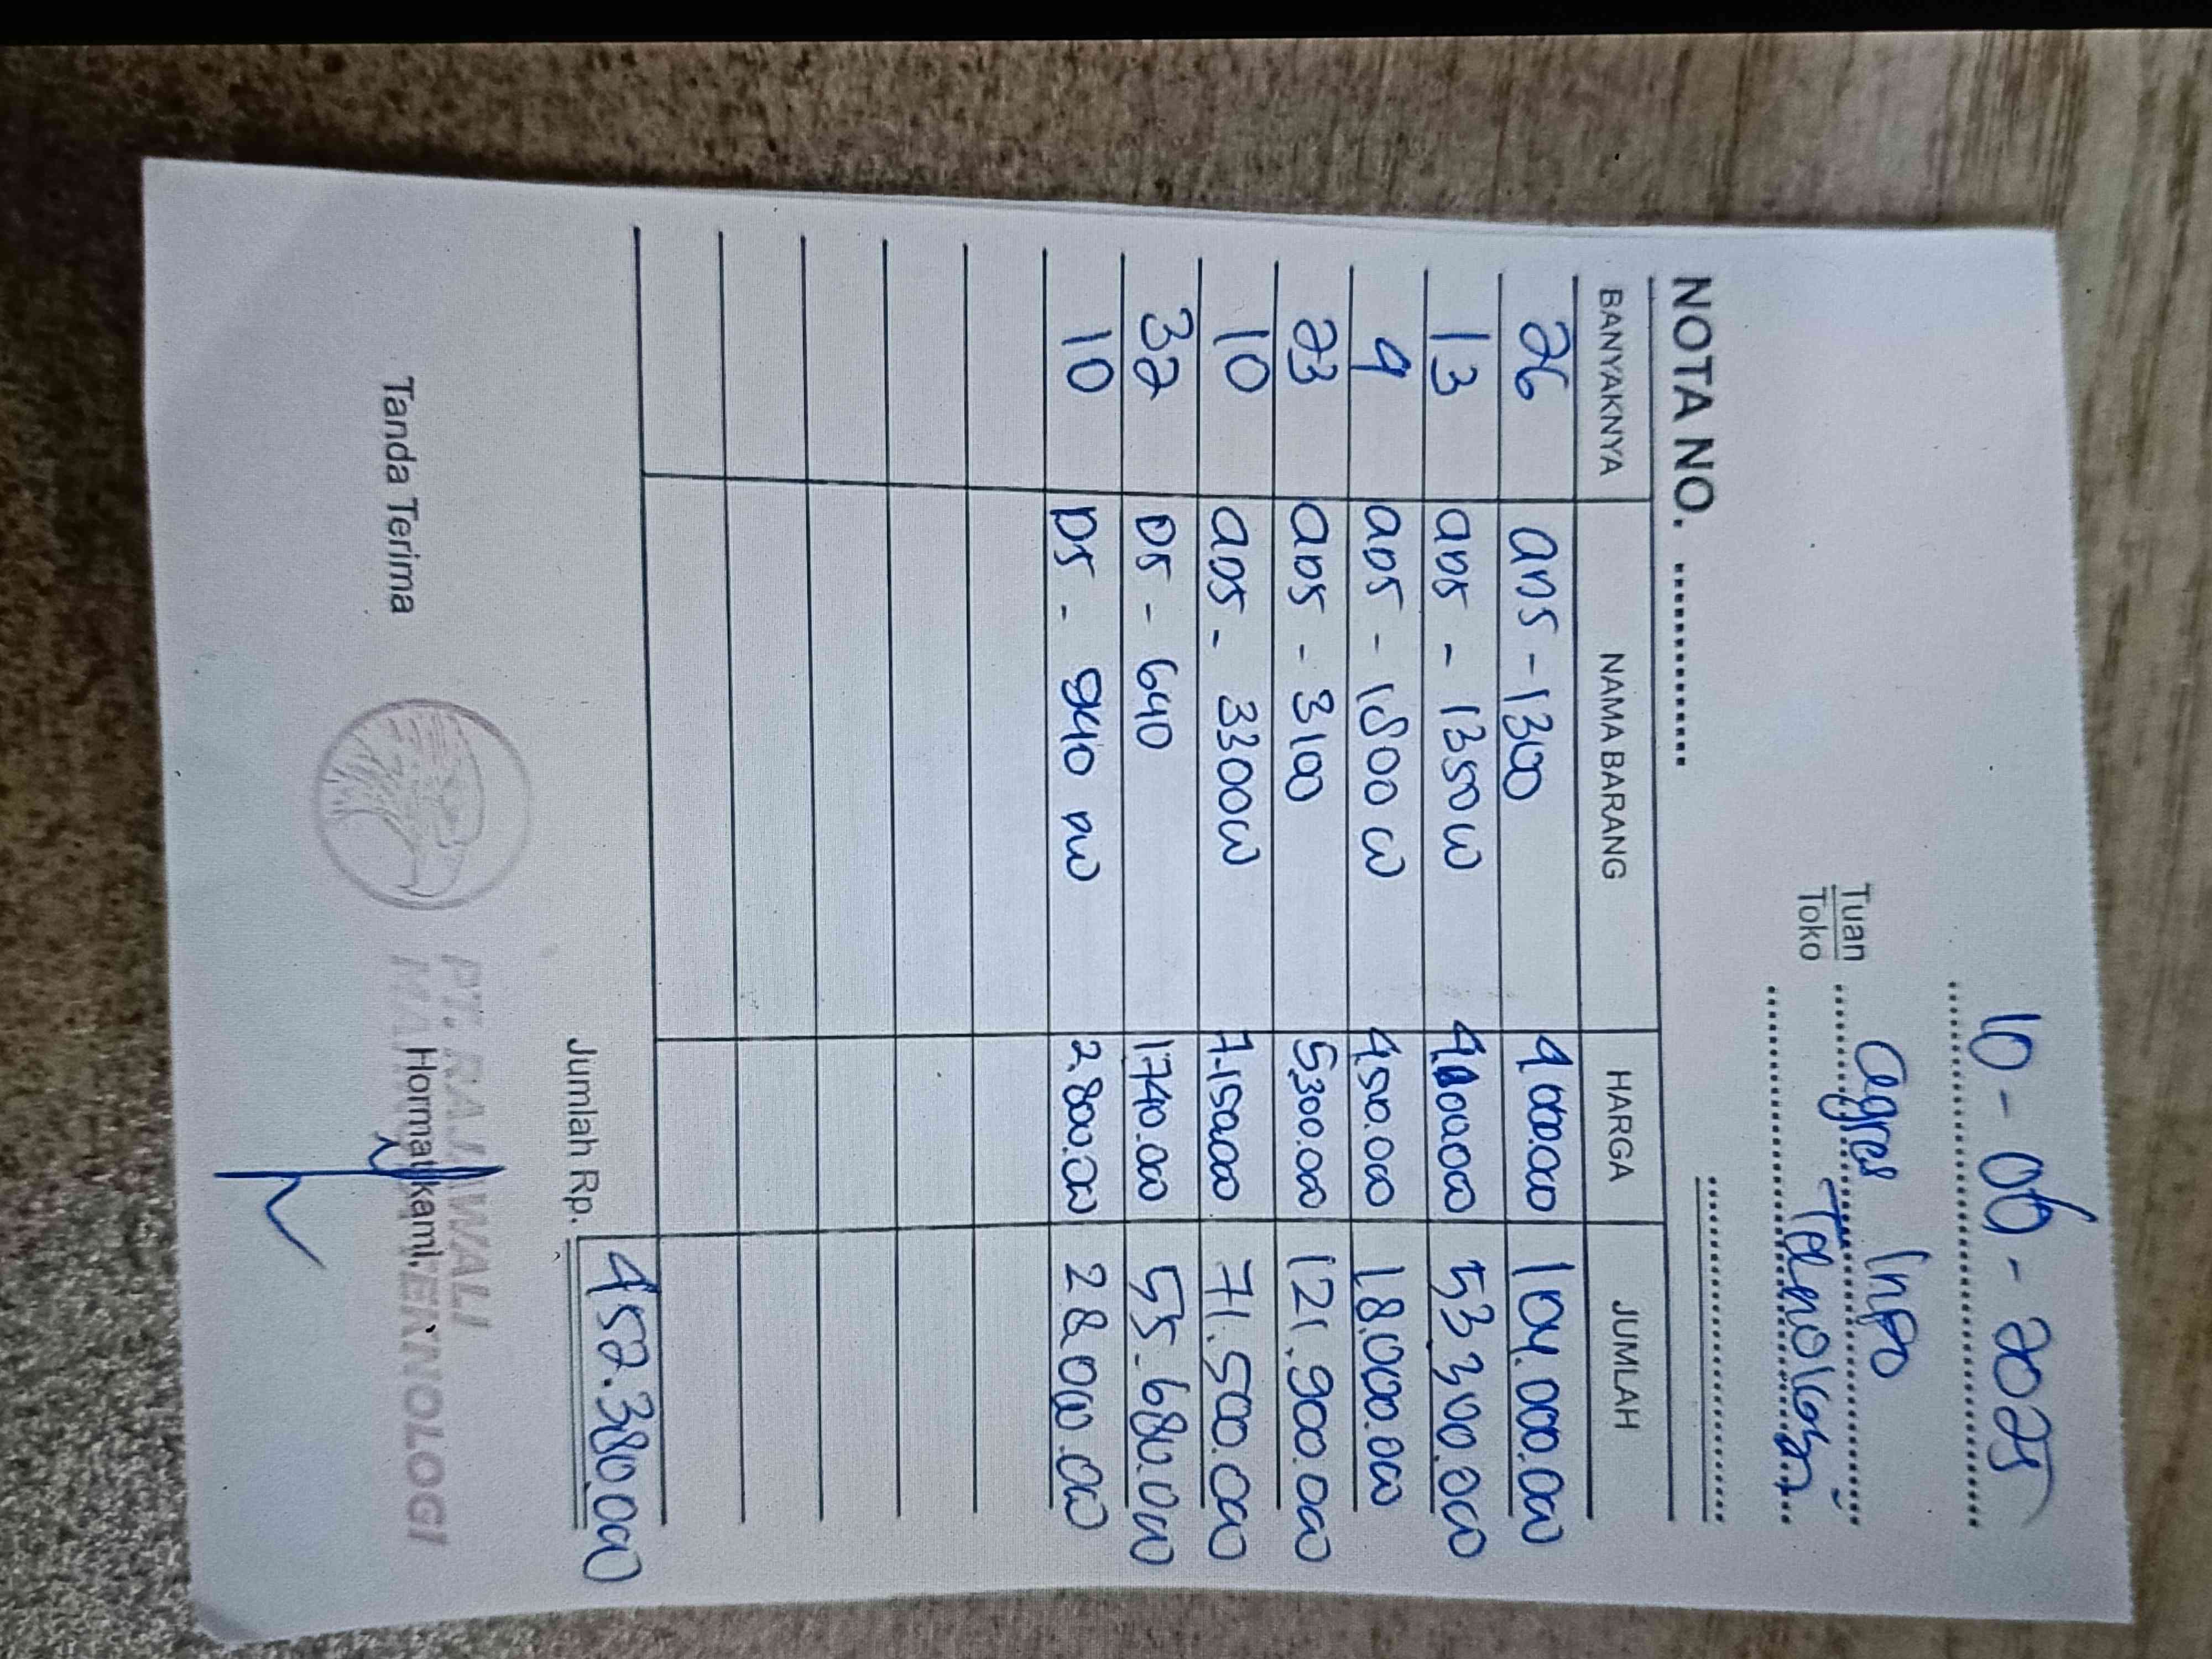 10-06-2025
Tuan Agres Info
Toko Teknologi
NOTA NO. ............
BANYAKNYA NAMA BARANG HARGA JUMLAH
26 ADS-1300 4000.000 104.000.000
13 ADS-1350W 4100000 53.300.000
4 ADS-1800W 4,500.000 18.000.000
23 ADS-3100 5300.000 121.900.000
10 ADS-3300W 7.150000 71.500.000
32 DS-640 1.740.000 55.680.000
10 DS-940 DW 2.800.000 28.000.000
Jumlah Rp. 452.380.000
Tanda Terima Hormat kami,
PT. RAJAWALI
TEKNOLOGI